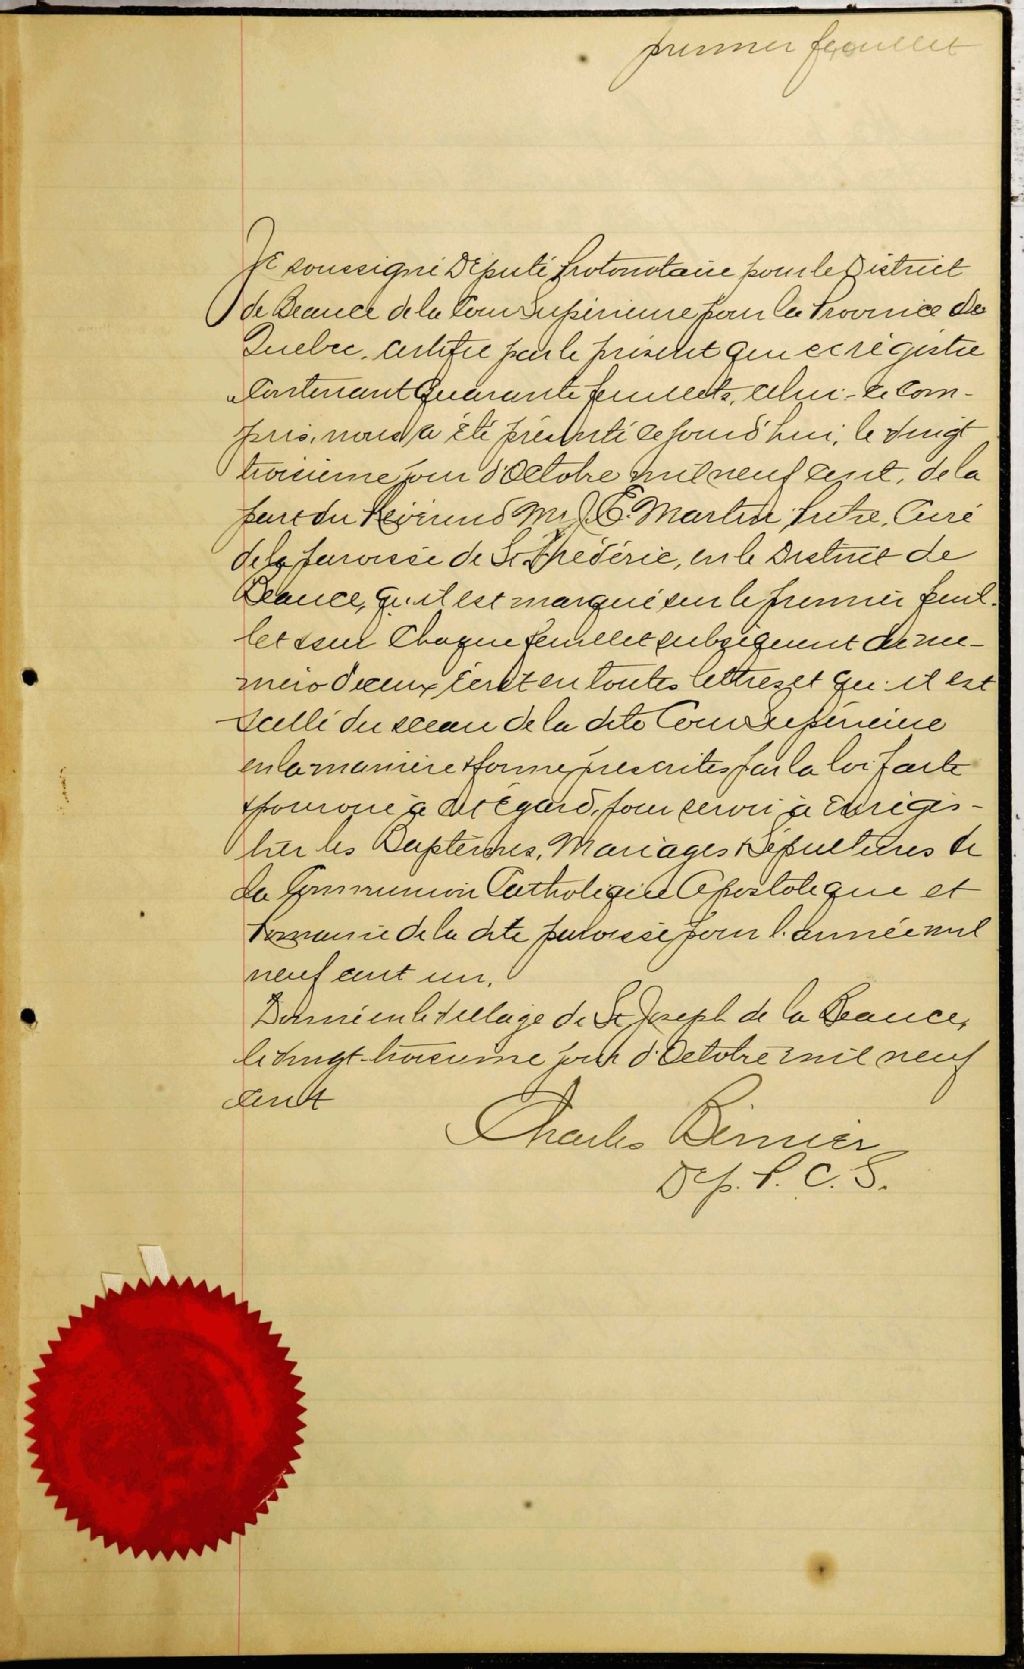 premier feuillet
Je soussigné Député Protonotaire pour le District
de Beauce de la Cour Supérieure pour la Province de
Quebec, certifie par le présent que ce régistre
contenant quarante feuillets, celui-ci com-
pris, nous a été présenté ce jourd'hui, le vingt
troisième jour d'Octobre mil neuf cent, de la
part du Révérend Mr J. E. Martin, Ptre, Curé
de la paroisse de St Frédéric, en le District de
Beauce, qu'il est marqué sur le premier feuil-
let & sur chaque feuillet subséquent du nu-
méro d'iceux, écrit en toutes lettres et qu'il est
scellé du sceau de la dite Cour Supérieure
en la manière & forme prescrites par la loi faite
& pourvue à cet égard, pour servir à enrégis-
trer les Baptêmes, Mariages & Sépultures de
la Communion Catholique Apostolique et
Romaine de la dite paroisse pour l'année mil
neuf cent un.
Donné en le village de St Joseph de la Beauce,
le vingt-troisième jour d'Octobre mil neuf
cent
Charles Bernier
Dep. P. C. S.